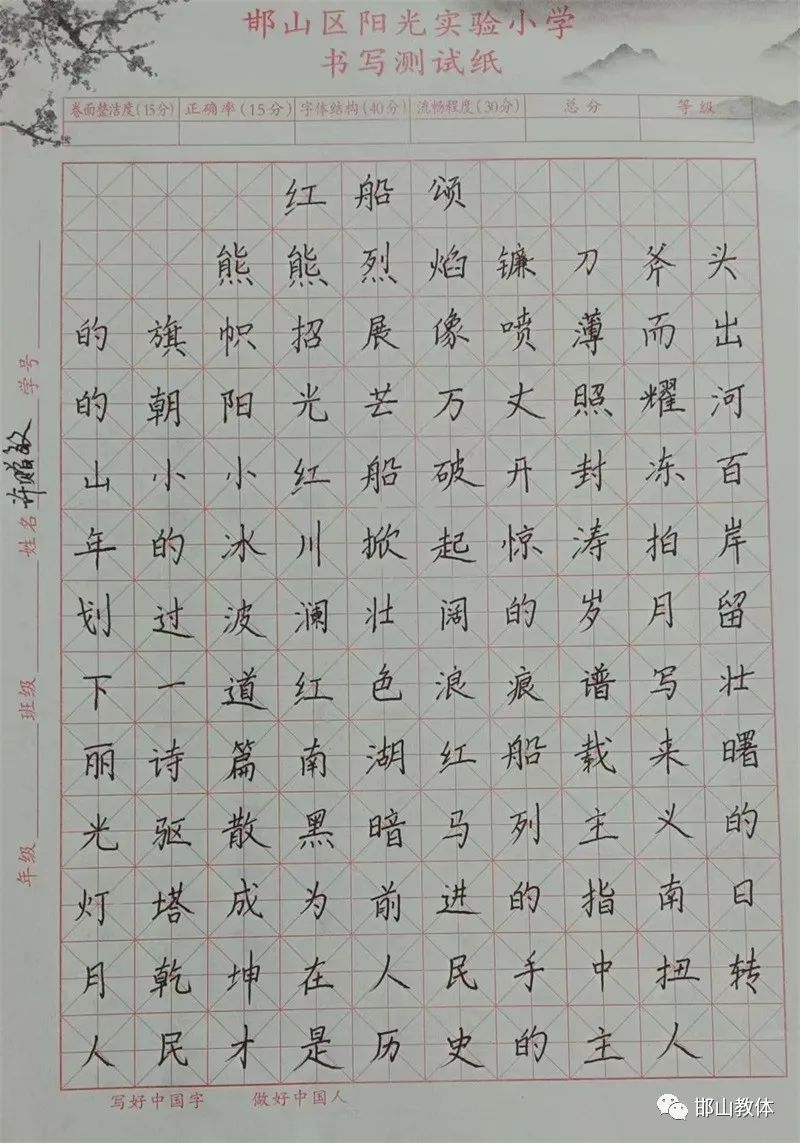 邯山区阳光实验小学
书写测试纸
卷面整洁度(15分) 正确率(15分) 字体结构(40分) 流畅程度(30分) 总分 等级
红船颂
熊熊烈焰镰刀斧头
的旗帜招展像喷薄而出
的朝阳光芒万丈照耀河
山小小红船破开封冻百
年的冰川掀起惊涛拍岸
划过波澜壮阔的岁月留
下一道红色浪痕谱写壮
丽诗篇南湖红船载来曙
光驱散黑暗马列主义的
灯塔成为前进的指南日
月乾坤在人民手中扭转
人民才是历史的主人
写好中国字 做好中国人
年级 班级 姓名 许 敏 学号
邯山教体